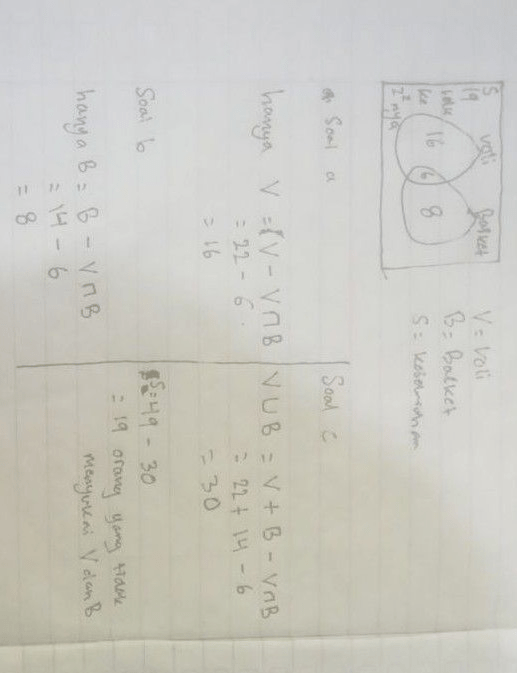 S
19
Voli
Basket
16
6
8
suka
ke
2² nya
V = Voli
B = Basket
S = keseluruhan
Soal a
hanya V = V - V∩B
= 22 - 6.
= 16
Soal b
hanya B = B - V∩B
= 14 - 6
= 8
Soal c
V∪B = V + B - V∩B
= 22 + 14 - 6
= 30
S = 49 - 30
= 19 orang yang tidak
menyukai V dan B